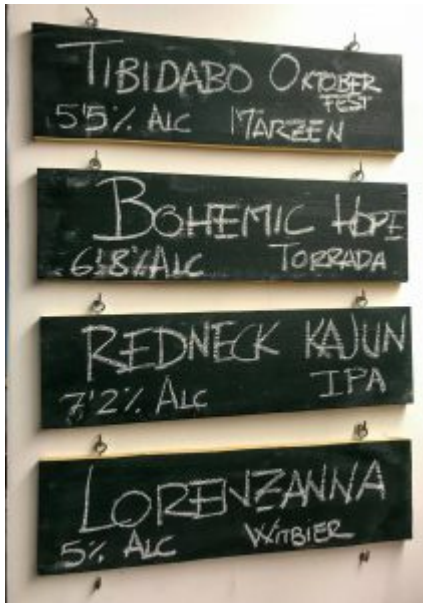 TIBIDABO OKTOBER
FEST
5'5% ALC MÄRZEN
BOHEMIC HOPE
6'8% ALC TORRADA
REDNECK KAJUN
7'2% ALC IPA
LORENZANNA
5% ALC WITBIER